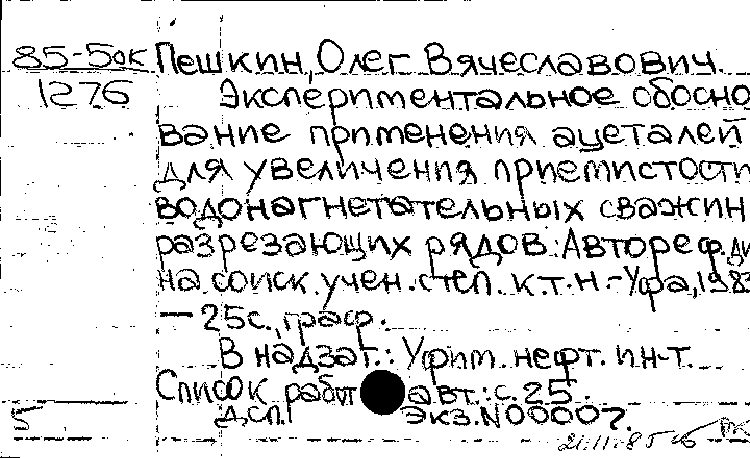 85-5ок Пешкин, Олег Вячеславович.
1276 Экспериментальное обосно
вание применения ацеталей
для увеличения приемистости
водонагнетательных скважин
разрезающих рядов: Автореф. ди
на соиск. учен. степ. к.т.н. - Уфа, 1983
— 25с., граф.
В надзаг.: Уфим. нефт. ин-т.
Список работ авт.: с. 25.
5 Дсп. Экз. N 00007.
21.11.85